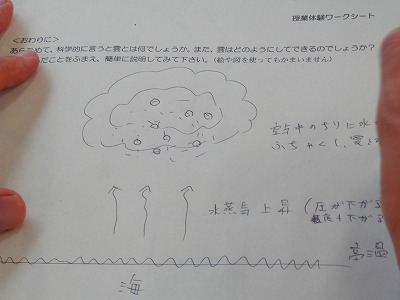 授業体験ワークシート
<おわりに>
あらためて、科学的に言うと雲とは何でしょうか。また、雲はどのようにしてできるのでしょうか?
だことをふまえ、簡単に説明してみて下さい。(絵や図を使ってもかまいません)
空気中のちりに水
ふちゃくし、雲と
水蒸気 上昇 (圧が下がる
温度も下がる
高温
海